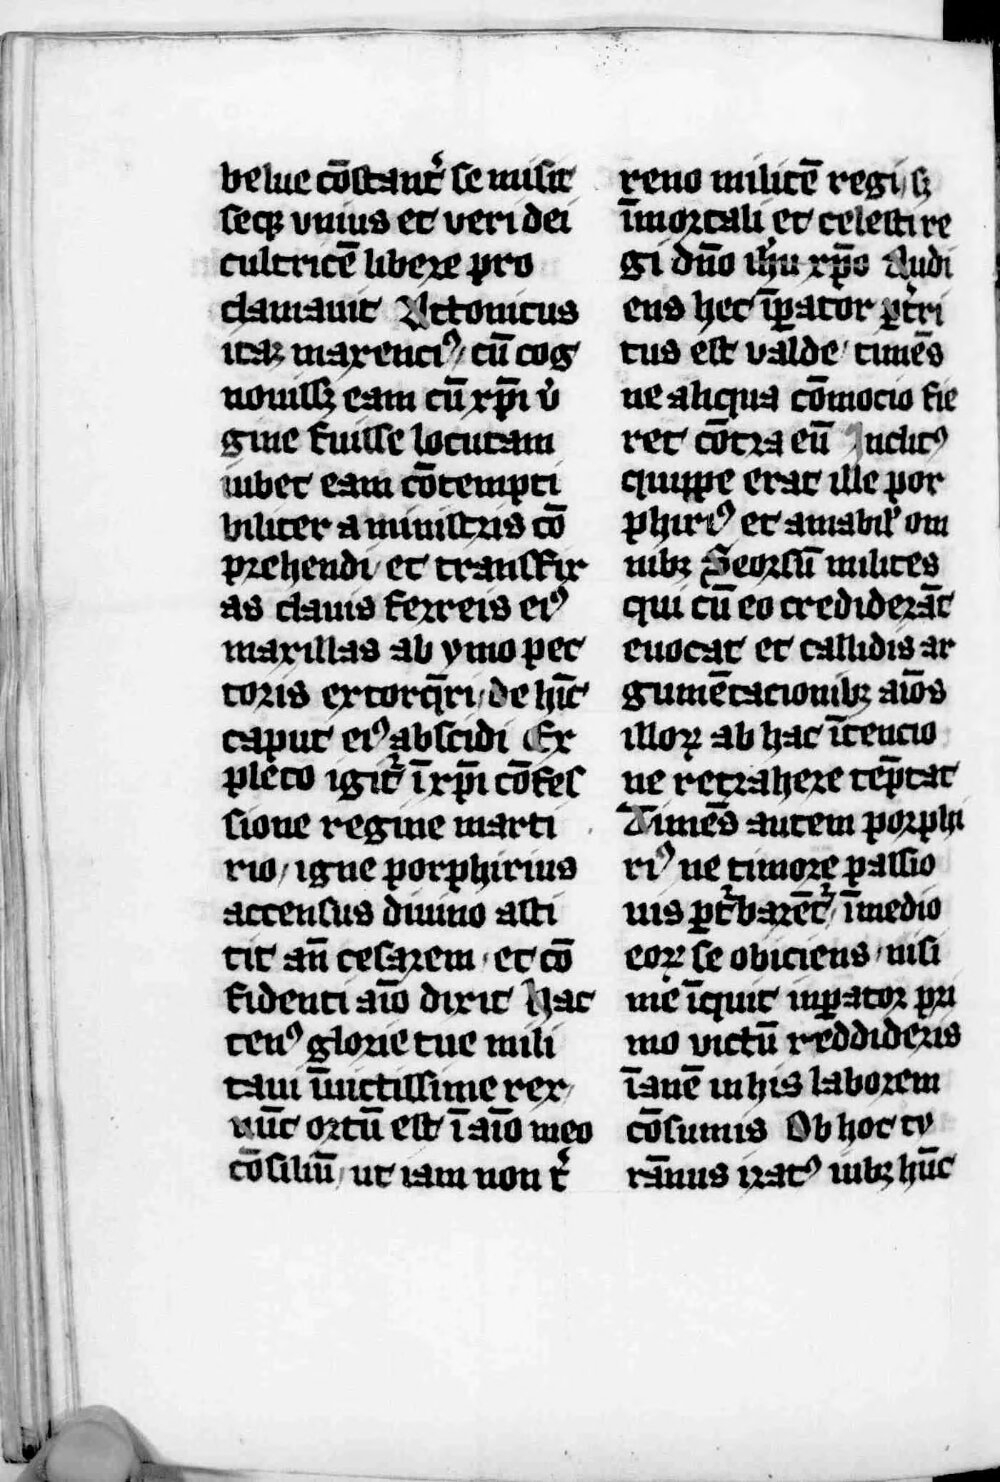 belue cōstant᷑ se misit
seqꝫ vnius et veri dei
cultricē libere pro
clamauit Attonitus
itaꝫ maxenciꝰ/ cū cog
nouissꝫ eam cū xp̄i v̓
gine fuisse locutam
iubet eam cōtempti
biliter a ministris cō
prehendi/ et transfix
as clauis ferreis eiꝰ
maxillas ab ymo pec
toris extorq̄ri/ de hīc
caput eiꝰ abscidi Ex
pleto igit᷑ ī xp̄i cōfes
sione regine marti
rio/ igne porphirius
accensus diuino asti
tit an̄ cesarem/ et cō
fidenti aīo dixit Hac
tenꝰ glorie tue mili
taui īuictissime rex/
nūc ortū est ī aīo meo
cōsiliū/ ut iam non t᷑
reno militē regi/ sꝫ
īmortali et celesti re
gi dn̄o ihu xp̄o Audi
ens hec īꝑator ꝑt᷑ri
tus est valde/ timēs
ne aliqua cōmocio fie
ret cōtra eū Inclitꝰ
quippe erat ille por
phiriꝰ et amabil̓ om
nibꝫ Seorsū milites
qui cū eo crediderāt
euocat et callidis ar
gumētacionibꝫ aīos
illoꝝ ab hac ītencio
ne retrahere tēptat
Timēs autem porphi
riꝰ ne timore passio
nis ꝑt᷑barēt᷑/ ī medio
eoꝝ se obiciens/ nisi
me īquit inꝑator pri
mo victū reddideris
īanē in his laborem
cōsumis Ob hoc ty
rānus iratꝰ iubꝫ hūc